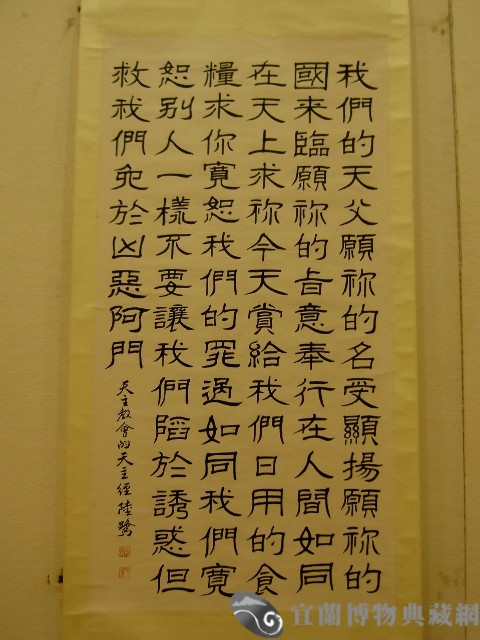 我們的天父願祢的名受顯揚願祢的
國来臨願祢的旨意奉行在人間如同
在天上求祢今天賞給我們日用的食
糧求你寬恕我們的罪過如同我們寬
恕別人一樣不要讓我們陷於誘惑但
救我們免於凶惡阿門
天主教會的天主經 陸鷺
宜蘭博物典藏網